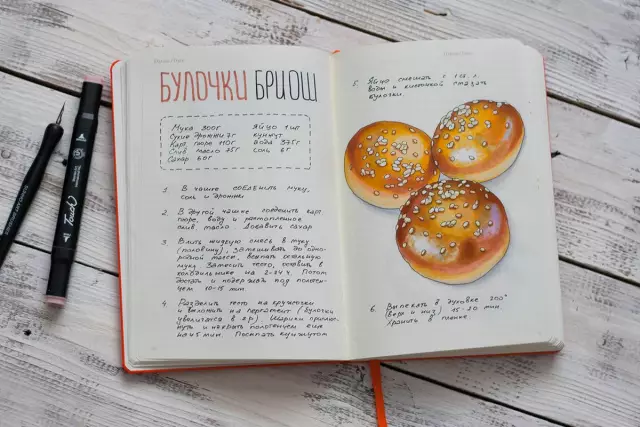 БУЛОЧКИ БРИОШ
Мука 300г
Сухие дрожжи 7г
Карт. пюре 110г
Слив масло 75г
Сахар 60г
Яйцо 1 шт
кунжут
Вода 375г
Соль 6г
1. В чашке соединить муку,
соль и дрожжи
2. В другой чашке соединить карт.
пюре, воду и растопленное
слив. масло. Добавить сахар
3. Влить жидкую смесь в муку
(половину). Замешивать до одно-
родной массы, всыпать остальную
муку. Замесить тесто, оставить в
холодильнике на 2-24 ч. Потом
достать и подержать под полотен-
цем 10-15 мин
4. Разделить тесто на кружочки
и выложить на пергамент (булочки
увеличатся в 2 р). Шарики приплюс-
нуть и накрыть полотенцем ещё
на 45 мин. Посыпать кунжутом
5. Яйцо смешать с 1 ст. л.
воды и кисточкой смазать
булочки.
6. Выпекать в духовке 200°
(верх и низ) 15-20 мин.
Хранить в пленке.